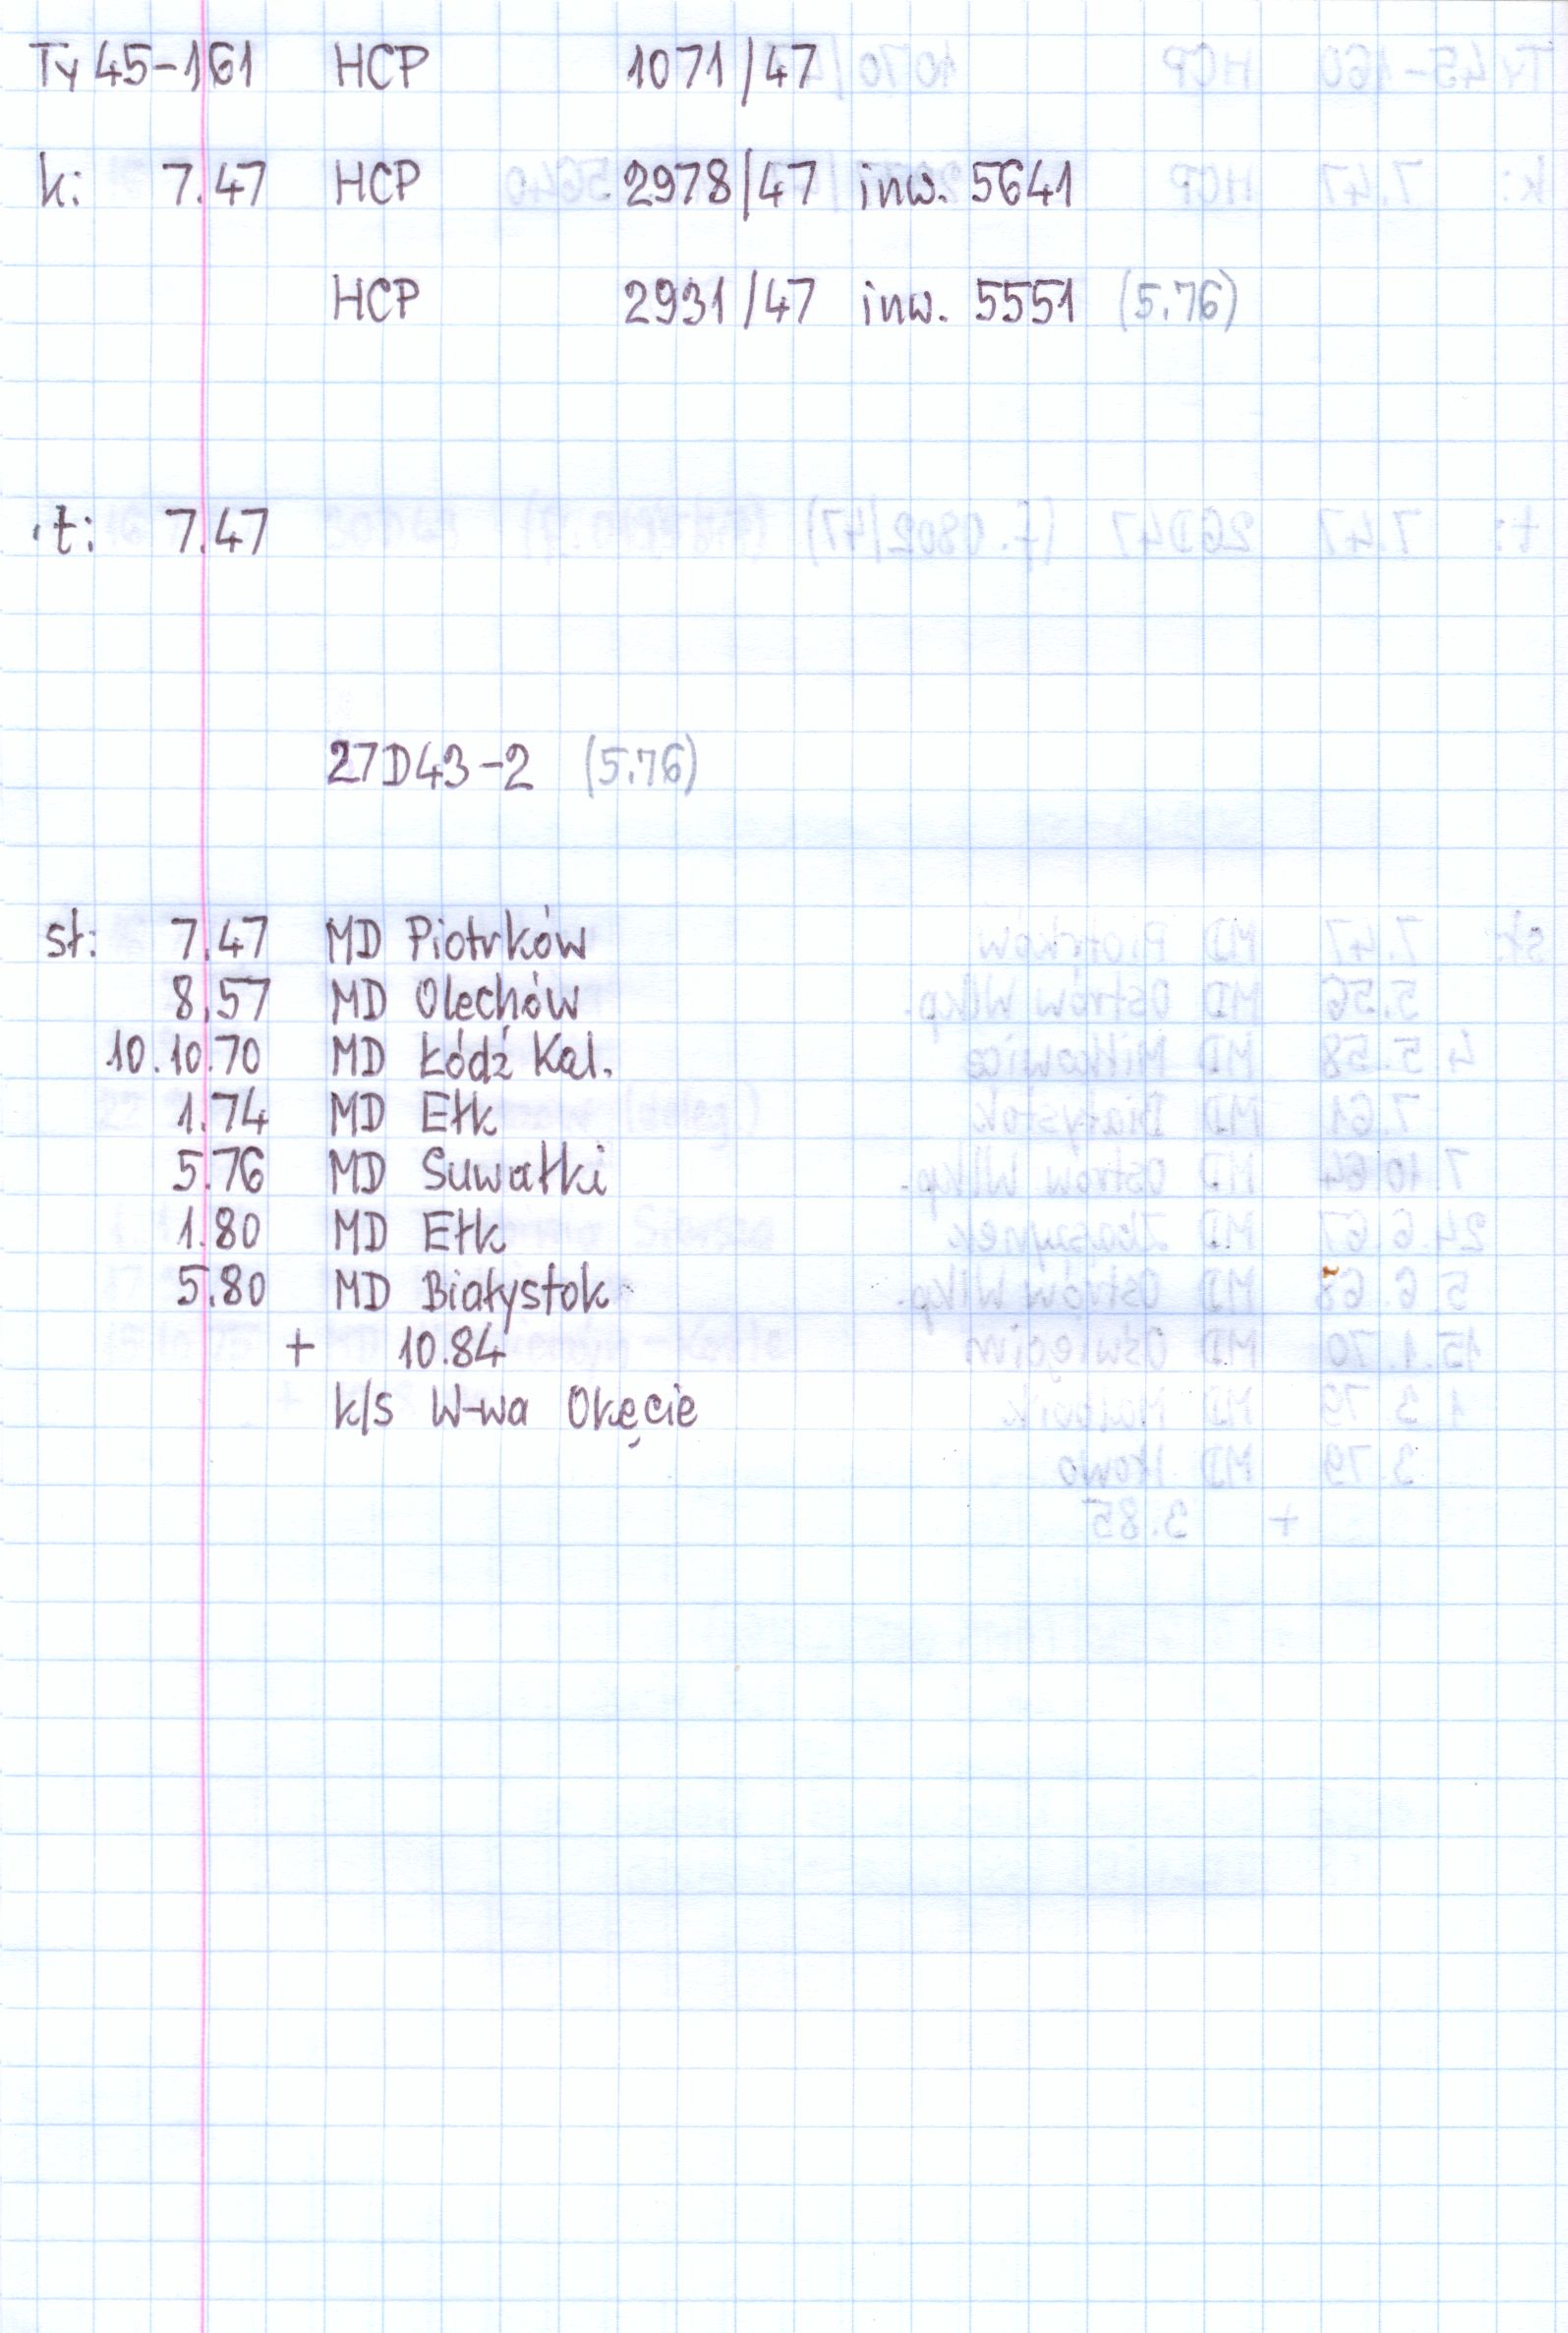 Ty 45-161 HCP 1071/47
k: 7.47 HCP 2978/47 inw. 5641
HCP 2931/47 inw. 5551 (5.76)
t: 7.47
27D43-2 (5.76)
sł: 7.47 MD Piotrków
8.57 MD Olechów
10.10.70 MD Łódź Kal.
1.74 MD Ełk
5.76 MD Suwałki
1.80 MD Ełk
5.80 MD Białystok
+ 10.84
k/s W-wa Okęcie